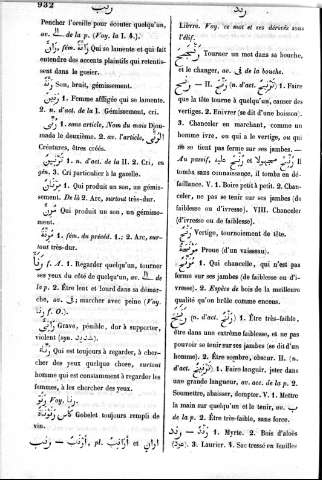 932
رنب
رند
Pencher l'oreille pour écouter quelqu'un,
av. الى de la p. (Voy. la I. 4.).
fém. Qui se lamente et qui fait
entendre des accents plaintifs qui retentis-
sent dans le gosier.
Son, bruit, gémissement.
1. Femme affligée qui se lamente.
2. n. d'act. de la I. Gémissement, cri.
1. sans article, Nom du mois Djou-
mada le deuxième. 2. av. l'article,
Créatures, êtres créés.
1. n. d'act. de la II. 2. Cri, en
gén. 3. Cri particulier à la gazelle.
1. Qui produit un son, un gémis-
sement. De là 2. Arc, surtout très-dur.
Qui produit un son, un gémis-
sement.
1. fém. du précéd. 2. Arc, sur-
tout très-dur.
f. A. 1. Regarder quelqu'un, tourner
ses yeux du côté de quelqu'un, av. الى de
la p. 2. Être lent et lourd dans sa démar-
che, av. في; marcher avec peine (Voy.
f. O.).
Grave, pénible, dur à supporter,
violent (syn. شديد).
Qui est toujours à regarder, à cher-
cher des yeux quelque chose, surtout
homme qui est constamment à regarder les
femmes, à les chercher des yeux.
Voy.
Gobelet toujours rempli de
vin.
رنب — أرنب, pl. أرانب et أران
Lièvre. Voy. ce mot et ses dérivés sous
l'élif.
Tourner un mot dans sa bouche,
et le changer, av. في de la bouche.
رنح — II. (n. d'act.) 1. Faire
que la tête tourne à quelqu'un, causer des
vertiges. 2. Enivrer (se dit d'une boisson)
3. Chanceler en marchant, comme un
homme ivre, ou qui a le vertige, ou qui
ne se tient pas ferme sur ses jambes. —
Au passif, Il
tomba sans connaissance, il tomba en dé-
faillance. V. 1. Boire petit à petit. 2. Chan-
celer, ne pas se tenir sur ses jambes (de
faiblesse ou d'ivresse). VIII. Chanceler
(d'ivresse ou de faiblesse).
Vertige, tournoiement de tête.
Proue (d'un vaisseau).
1. Qui chancelle, qui n'est pas
ferme sur ses jambes (de faiblesse ou d'i-
vresse). 2. Espèce de bois de la meilleure
qualité qu'on brûle comme encens.
رنخ (n. d'act.) 1. Être très-faible,
être dans une extrême faiblesse, et ne pas
pouvoir se tenir sur ses jambes (se dit d'un
homme). 2. Être sombre, obscur. II. (n.
d'act.) 1. Faire languir, jeter dans
une grande langueur, av. acc. de la p. 2.
Soumettre, abaisser, dompter. V. 1. Mettre
la main sur quelqu'un et le tenir, av. ب
de la p. 2. Être très-faible, sans force.
رند — 1. Myrte. 2. Bois d'aloès
(عود). 3. Laurier. 4. Sac tressé en feuilles